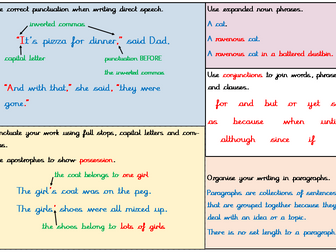 e correct punctuation when writing direct speech.
inverted commas
"It's pizza for dinner," said Dad.
capital letter
punctuation BEFORE
the inverted commas
"And with that," she said, "they were
gone."
nctuate your work using full stops, capital letters and com-
as.
e apostrophes to show possession.
the coat belongs to one girl
The girl's coat was on the peg.
The girls' shoes were all mixed up.
the shoes belong to lots of girls
Use expanded noun phrases.
A cat.
A ravenous cat.
A ravenous cat in a battered dustbin.
Use conjunctions to join words, phrases
and clauses.
for and but or yet s
as because when unti
although since if
Organise your writing in paragraphs.
Paragraphs are collections of sentences
that are grouped together because they
deal with an idea or a topic.
There is no set length to a paragraph